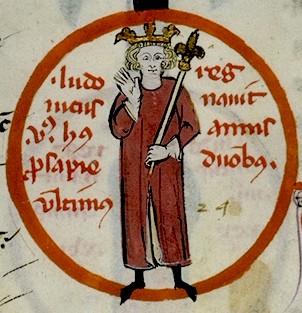 ·ludo
uicus
vꝰ hꝰ
ꝓsapie
vltimꝰ
reg
nauit
annis
duobꝫ.
24